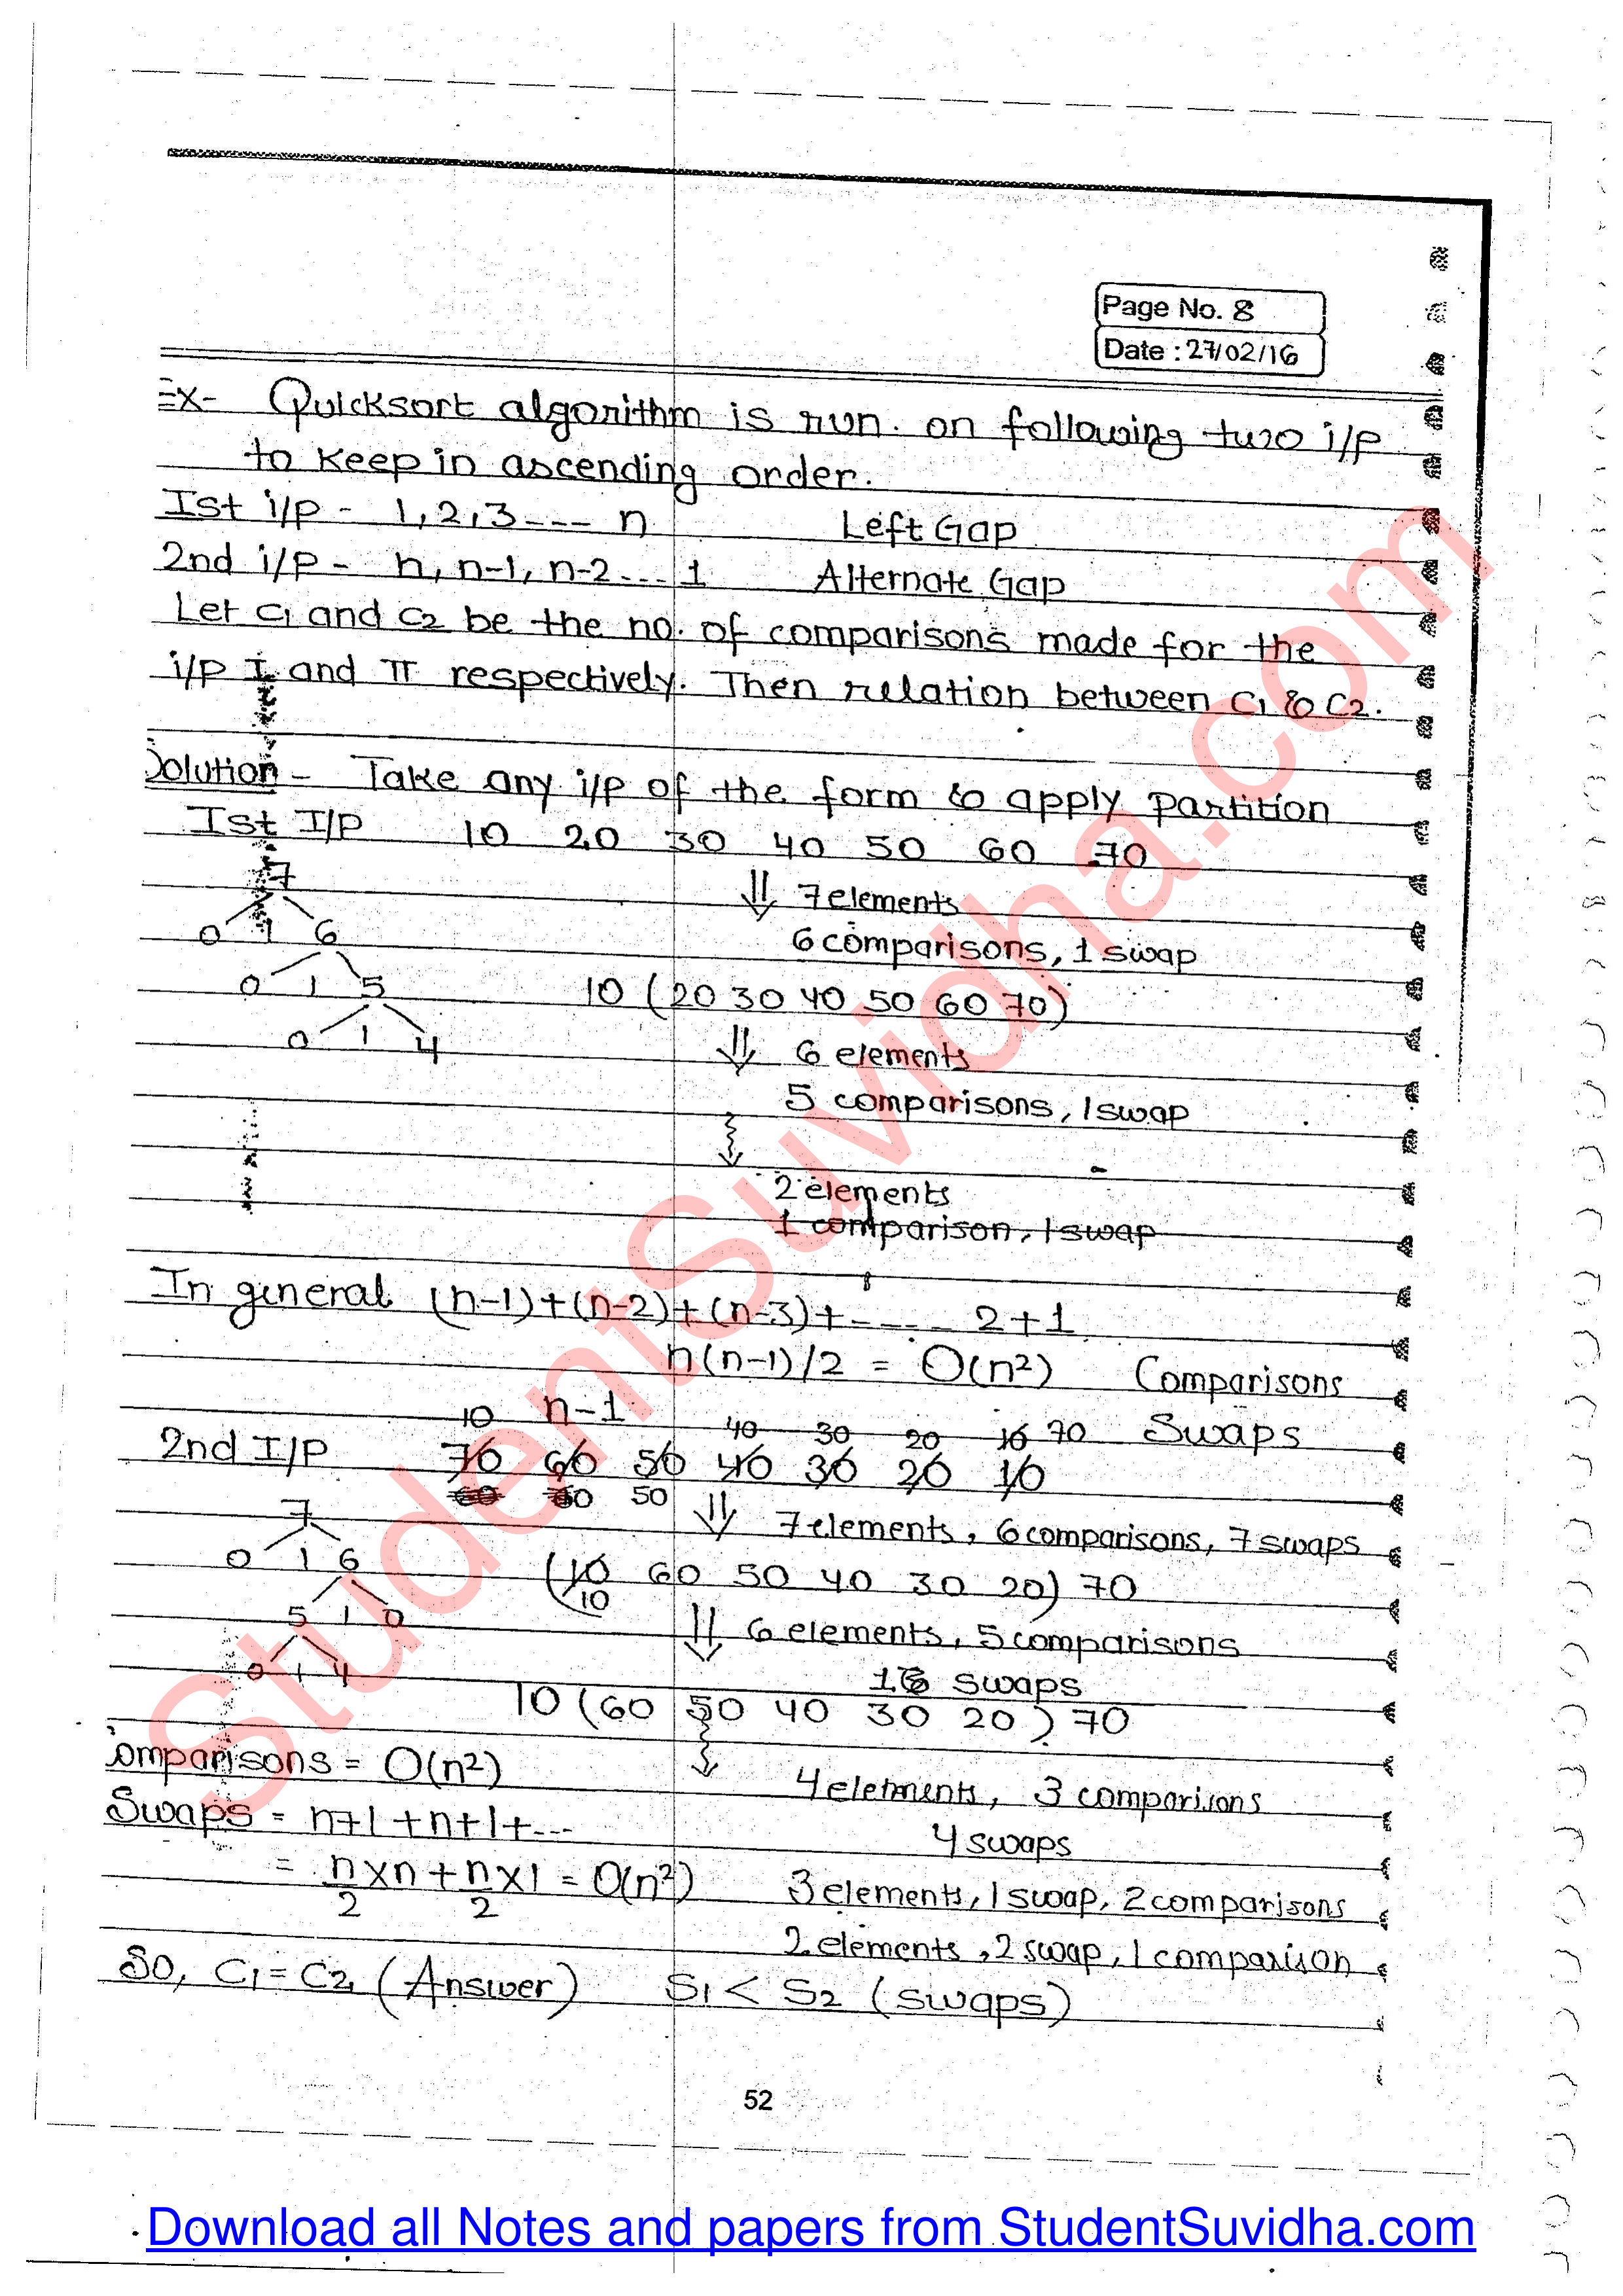 Page No. 8
Date : 27/02/16
Ex- Quicksort algorithm is run. on following two i/p
to keep in ascending order.
Ist i/p - 1, 2, 3 ---- n Left Gap
2nd i/p - n, n-1, n-2 ... 1 Alternate Gap
Let C1 and C2 be the no. of comparisons made for the
i/p I and II respectively. Then relation between C1 & C2.
Solution - Take any i/p of the form & apply partition
Ist I/P 10 20 30 40 50 60 70
7
⇓ 7 elements
0 1 6
6 comparisons, 1 swap
0 1 5
10 (20 30 40 50 60 70)
0 1 4
⇓ 6 elements
5 comparisons, 1 swap
2 elements
1 comparison, 1 swap
In general (n-1)+(n-2)+(n-3)+---- 2+1
n(n-1)/2 = O(n²) Comparisons
n-1 Swaps
10 40 30 20 10 70
2nd I/P 70 60 50 40 30 20 10
60 50
7
⇓ 7 elements, 6 comparisons, 7 swaps
0 1 6
(10 60 50 40 30 20) 70
10
5 1 0
⇓ 6 elements, 5 comparisons
0 1 4
1 swaps
10 (60 50 40 30 20) 70
Comparisons = O(n²)
4 elements, 3 comparisons
Swaps = n+1+n+1+---
4 swaps
= n/2 x n + n/2 x 1 = O(n²)
3 elements, 1 swap, 2 comparisons
2 elements, 2 swap, 1 comparison
So, C1 = C2 (Answer) S1 < S2 (swaps)
52
StudentSuvidha.com
Download all Notes and papers from StudentSuvidha.com